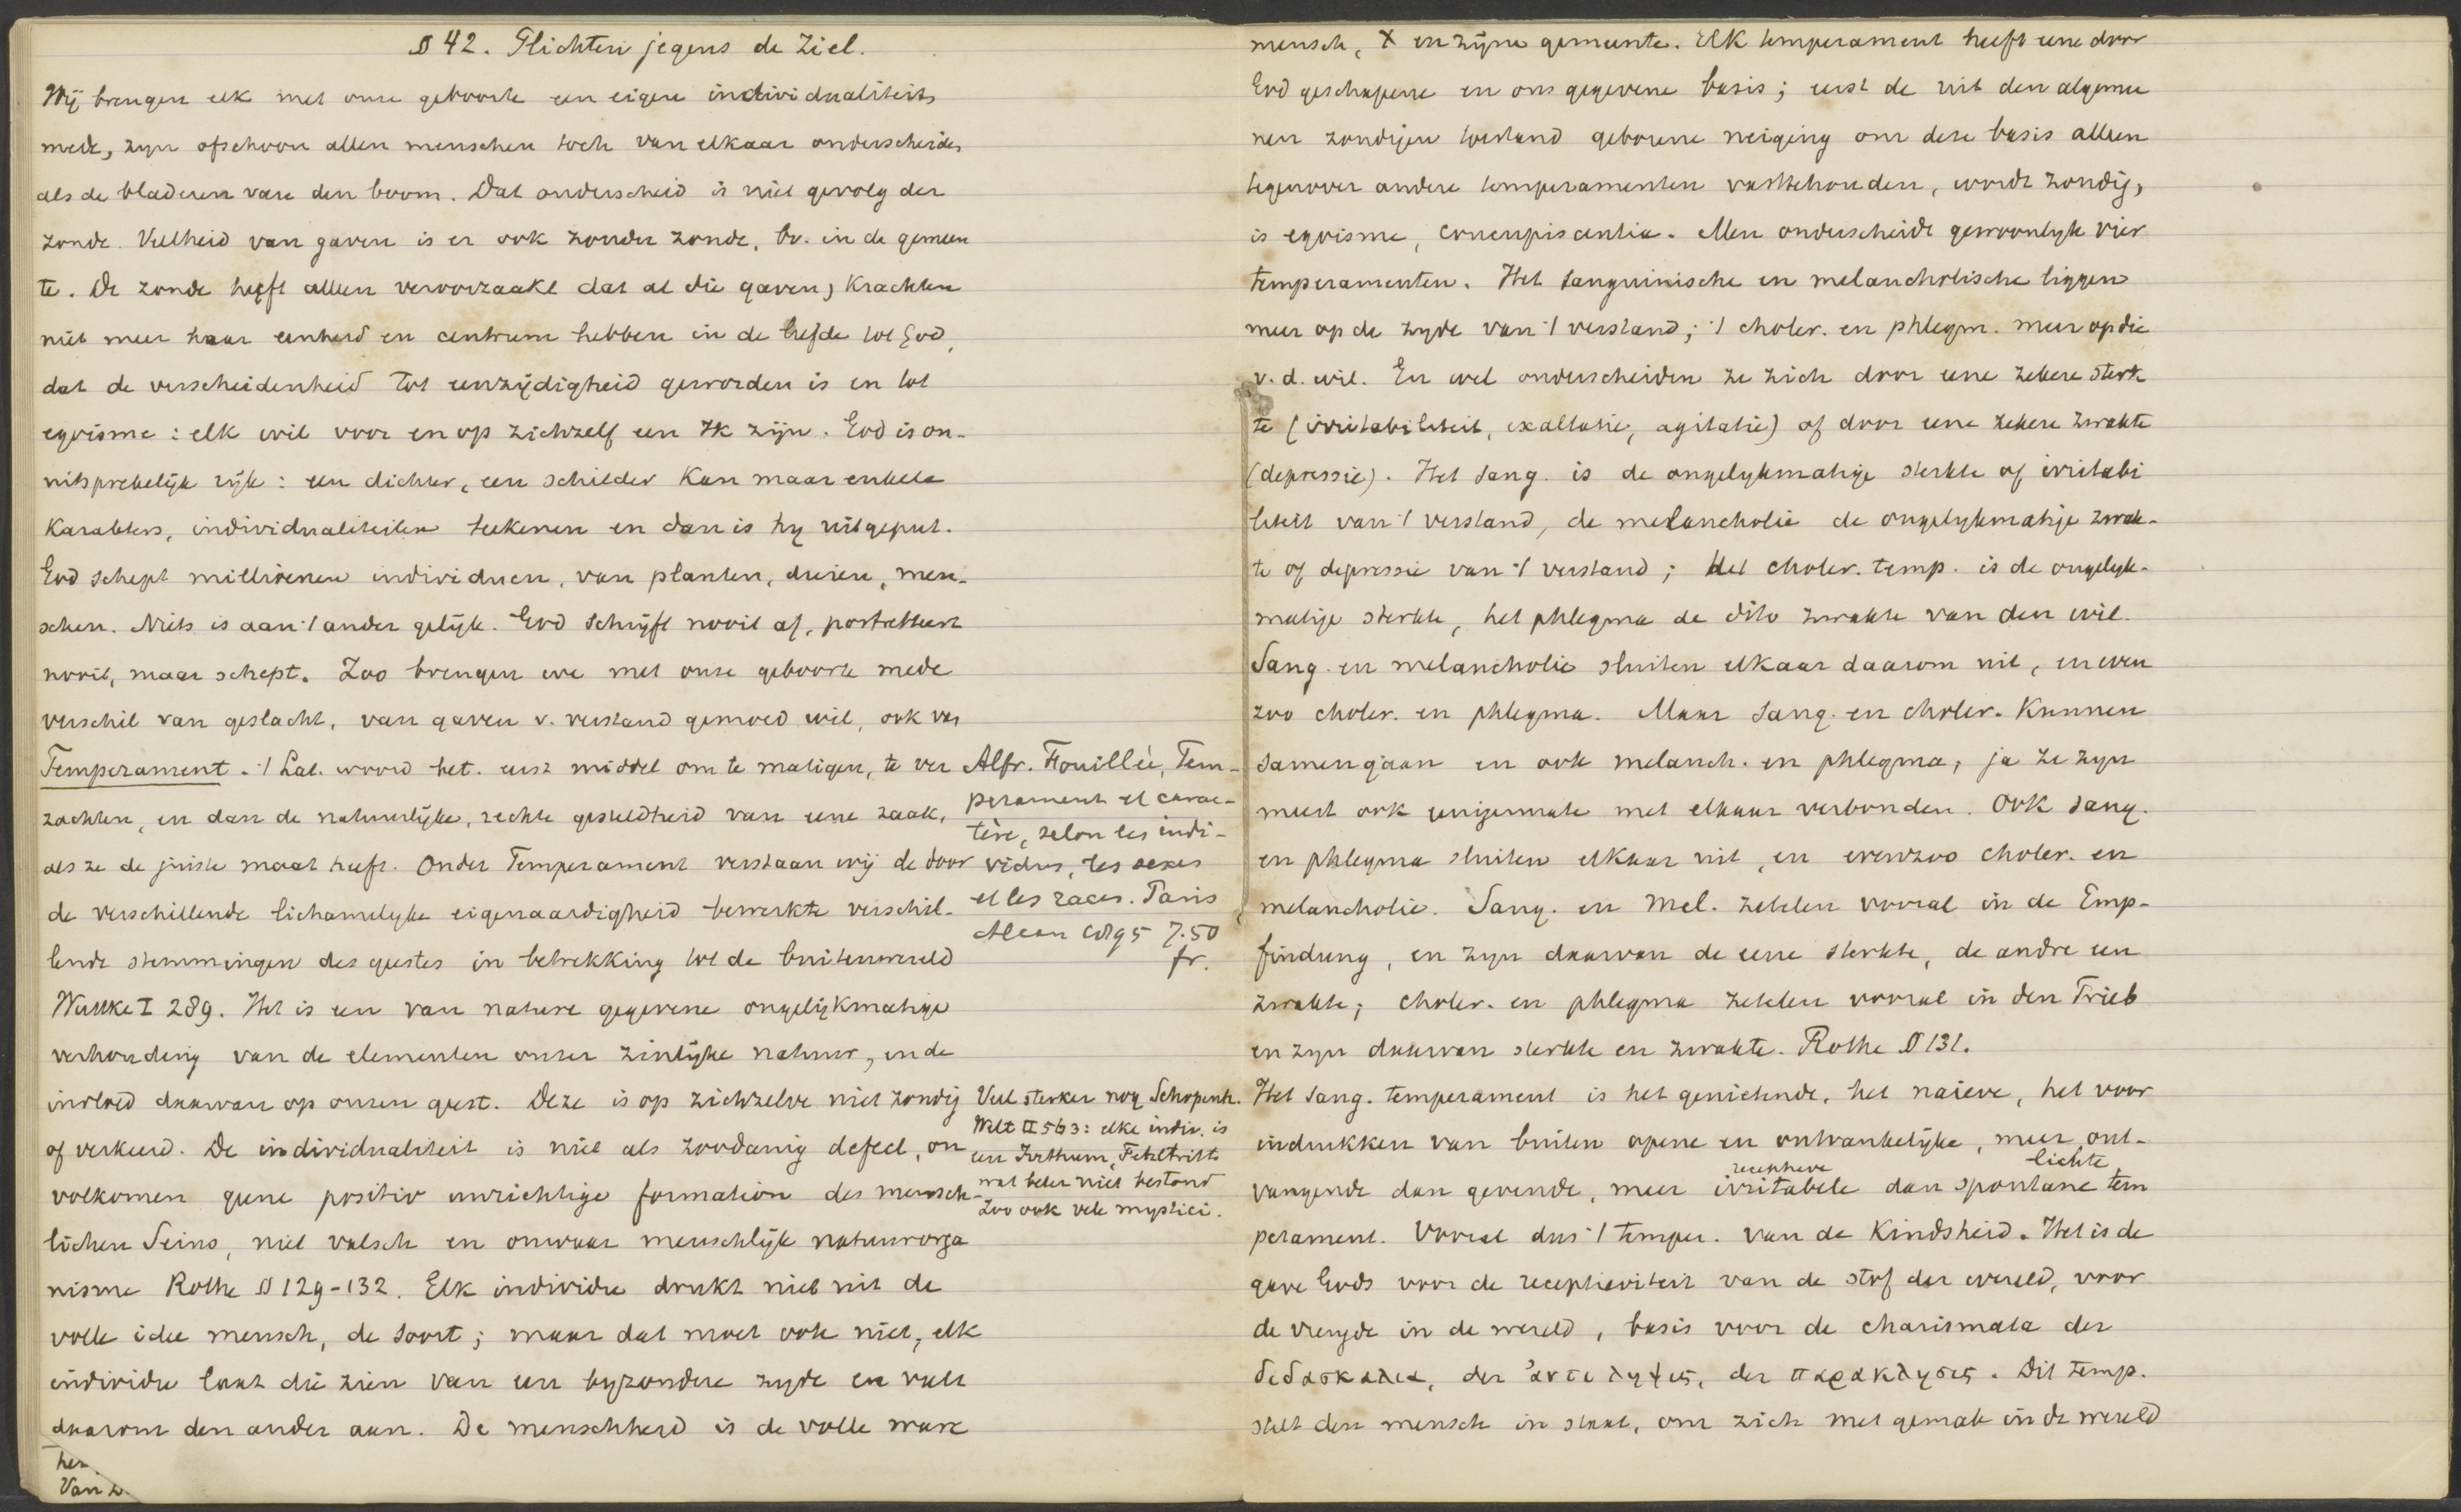 § 42. Plichten jegens de Ziel.
Wij brengen elk met onze geboorte een eigen individualiteit
mede, zyn ofschoon allen menschen toch van elkaar onderscheiden
als de bladeren van den boom. Dat onderscheid is niet gevolg der
zonde. Veelheid van gaven is er ook zonder zonde, bv. in de gemeen
te. De zonde heeft alleen veroorzaakt dat al die gaven, krachten
niet meer haar eenheid en centrum hebben in de liefde tot God,
dat de verscheidenheid tot eenzijdigheid geworden is en tot
egoisme: elk wil voor en op zichzelf een Ik zijn. God is on-
uitsprekelijk rijk: een dichter, een schilder kan maar enkele
karakters, individualiteiten teekenen en dan is hy uitgeput.
God schept millioenen individuen, van planten, dieren, men-
schen. Niets is aan 't ander gelijk. God schrijft nooit af, portretteert
nooit, maar schept. Zoo brengen we met onze geboorte mede
verschil van geslacht, van gaven v. verstand gemoed wil, ook van
Temperament. 't Lat. woord bet. eerst middel om te matigen, te ver
zachten, en dan de natuurlijke, rechte gesteldheid van eene zaak,
als ze de juiste maat heeft. Onder Temperament verstaan wij de door
de verschillende lichamelyke eigenaardigheid bewerkte verschil-
lende stemmingen des geestes in betrekking tot de buitenwereld
Wuttke I 289. Het is een van nature gegevene ongelijkmatige
verhouding van de elementen onzer zinlijke natuur, en de
invloed daarvan op onzen geest. Deze is op zichzelve niet zondig
of verkeerd. De individualiteit is niet als zoodanig defect, on
volkomen geene positiv unrichtige formation des mensch-
lichen Seins, niet valsch en onwaar menschlijk natuurorga
nisme Rothe § 129-132. Elk individu drukt niet uit de
volle idee mensch, de soort; maar dat moet ook niet, elk
individu laat die zien van een byzondere zyde en vult
daarom den ander aan. De menschheid is de volle ware
Alfr. Fouillée, Tem-
perament et carac-
tère, selon les indi-
vidus, les sexes
et les races. Paris
Alcan 1895 7.50
fr.
Veel sterker nog Schopenh.
Welt II 563: elke indiv. is
een Irrthum, Fehltritt
wat beter niet bestond
Zoo ook vele mystici.
her
Van
mensch, X en zijne gemeente. Elk temperament heeft eene door
God geschapene en ons gegevene basis; eerst de uit den algemee
nen zondigen toestand geborene neiging om deze basis alleen
tegenover andere temperamenten vasttehouden, wordt zondig,
is egoisme, concupiscentia. Men onderscheidt gewoonlyk vier
temperamenten. Het sanguinische en melancholische liggen
meer op de zyde van 't verstand; 't choler. en phlegm. meer op die
v. d. wil. En wel onderscheiden ze zich door eene zekere sterk
te (irritabiliteit, exaltatie, agitatie) of door eene zekere zwakte
(depressie). Het sang. is de ongelykmatige sterkte of irritabi
liteit van 't verstand, de melancholie de ongelykmatige zwak-
te of depressie van 't verstand; het choler. temp. is de ongelyk-
matige sterkte, het phlegma de dito zwakte van den wil.
Sang. en melancholie sluiten elkaar daarom uit, en even
zoo choler. en phlegma. Maar sang. en choler. kunnen
samengaan en ook melanch. en phlegma, ja ze zyn
meest ook eenigermate met elkaar verbonden. Ook sang.
en phlegma sluiten elkaar uit, en evenzoo choler. en
melancholie. Sang. en Mel. zetelen vooral in de Emp-
findung, en zyn daarvan de eene sterkte, de andre een
zwakte; choler. en phlegma zetelen vooral in den Trieb
en zyn daarvan sterkte en zwakte. Rothe § 131.
Het sang. temperament is het genietende, het naieve, het voor
indrukken van buiten opene en ontvankelijke, meer ont-
receptieve lichte
vangende dan gevende, meer irritabele dan spontane tem
perament. Vooral dus 't temper. van de kindsheid. Het is de
gave Gods voor de receptieviteit van de stof der wereld, voor
de vreugde in de wereld, basis voor de charismata der
διδασκαλια, der ἀντιληψις, der παρακλησις. Dit temp.
stelt den mensch in staat, om zich met gemak in de wereld